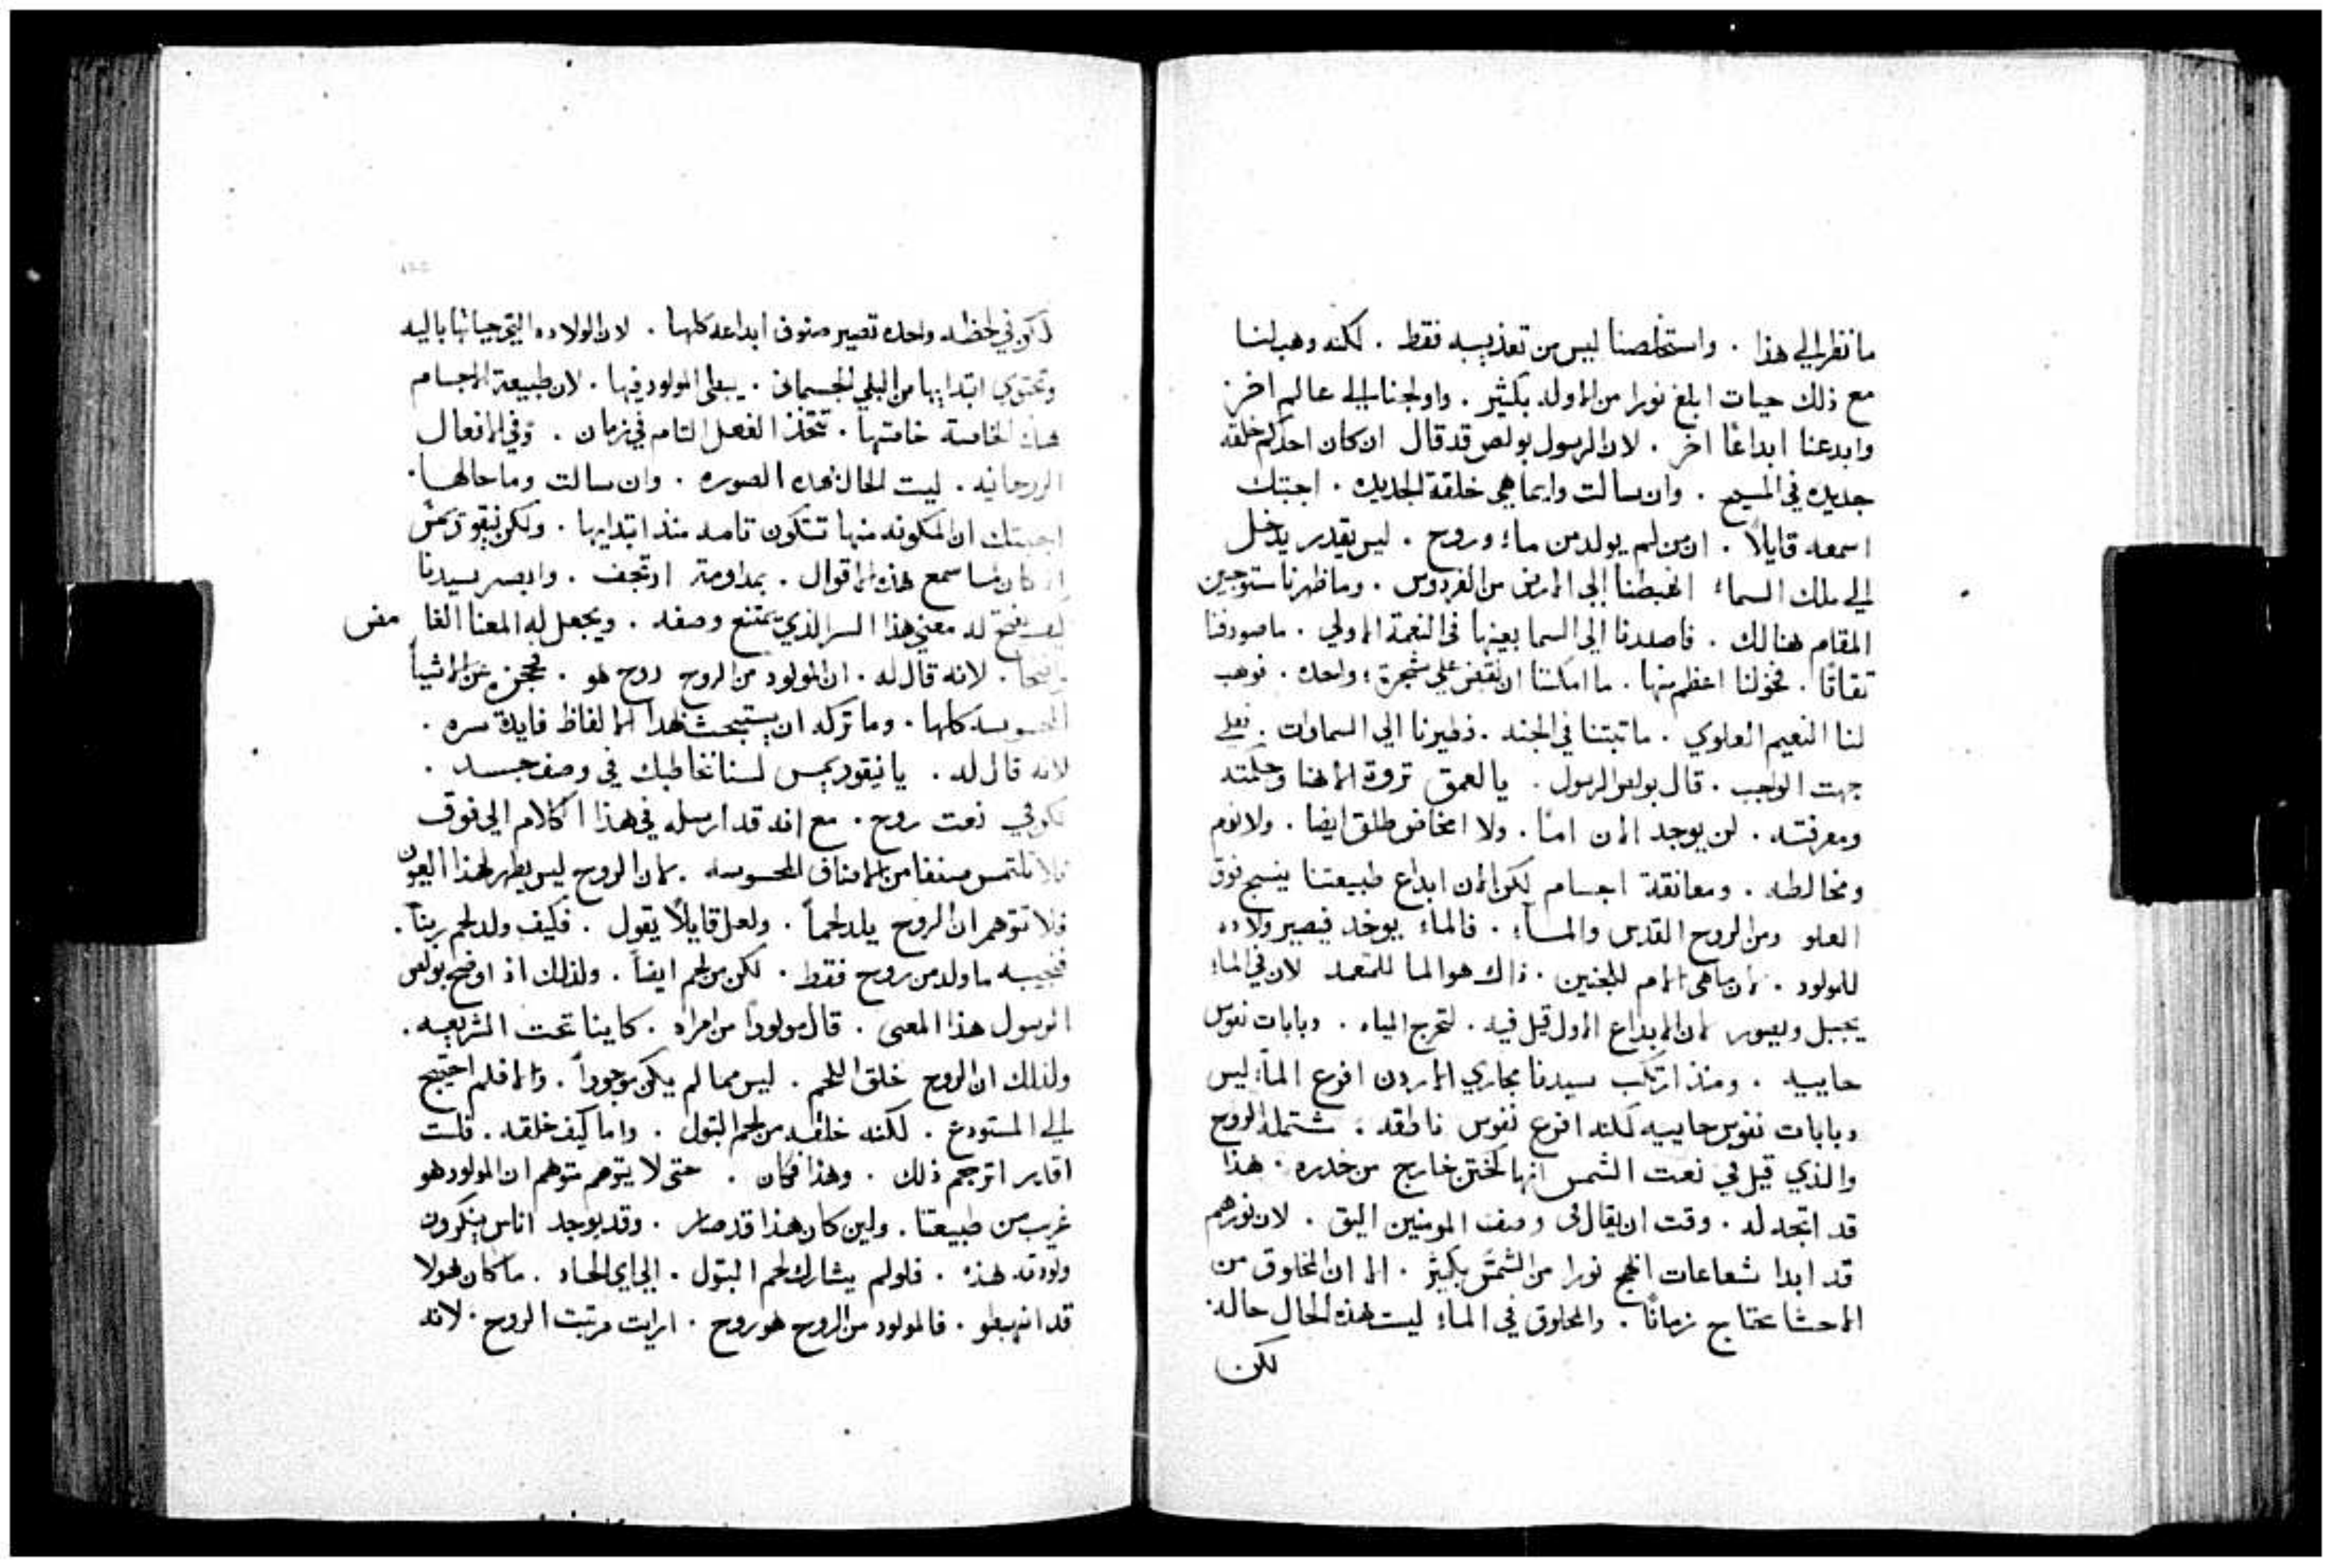 ما نظر الي هذا . واستخلصنا ليس من تعذيبه فقط . لكنه وهب لنا
مع ذلك حيات ابلغ نورا من الاوله بكثير . واولجنا الي عالم اخر
وابدعنا ابداعًا اخر . لان الرسول بولص قد قال ان كان احدكم خلقه
جديده في المسيح . وان سالت وايما هي خلقة الجديده . اجبتك
اسمعه قايلاً . ان من لم يولد من ماء وروح . ليس يقدر يدخل
الي ملك السماء اهبطنا الي الارض من الفردوس . وما ظهرنا مستوجبين
المقام هنالك . فاصعدنا الي السما بعينها في النعمة الاولي . ما صودفنا
تقاتًا . فخولنا اعظم منها . ما امكننا ان نقبض علي شجرة واحده . فوهب
لنا النعيم العلوي . ما تبتنا في الجنه . فطيرنا الي السماوات . فعلي
جهت الواجب . قال بولص الرسول . يا لعمق تروة الاهنا وحكمته
ومعرفته . لن يوجد الان امًا . ولا امخاض طلق ايضا . ولا نوم
ومخالطه . ومعانقة اجسام لكن الان ابداع طبيعتنا ينسج فوق
العلو ومن الروح القدس والمسآء . فالماء يوخد فيصير ولاده
للمولود . لان ما هي الام للجنين . ذاك هو الما للمتعمد لان في الماء
يجبل ويصور لان الابداع الاول قيل فيه . لتخرج المياه . وبابات نفوس
حاييه . ومنذ ارتكب سيدنا مجاري الاردن افرع المآء ليس
وبابات نفوس حاييه لكنه افرع نفوس ناطقه . مشتمله الروح
والذي قيل في نعت الشمس انها كختن خارج من خدره . هذا
قد اتجه له . وقت ان يقال في وصف المومنين اليق . لان نورهم
قد ابدا شعاعات ابهج نورا من الشمس بكثير . الا ان المخلوق من
الاحشا يحتاج زمانًا . والمخلوق في الماء ليست هذه الحال حاله .
لكن
لكن في لحظه واحده تصير صنوف ابداعه كلها . لان الولاده التي حياتها باليه
وتحتوي ابتدايها من البلي الجسماني . يبطي المولود فيها . لان طبيعة الاجسام
هذه الخاصة خاصتها . تتخذ الفعل التام في زمان . وفي الافعال
الروحانيه . ليست الحال بهده الصوره . وان سالت وما حالها .
اجبتك ان المكونه منها تتكون تامه منذ ابتدايها . ولكن نيقوديمس
اذ كان لما سمع هذه الاقوال . بمداومة ارتجف . وابصر سيدنا
كيف يفتح له معني هذا السر الذي يمتنع وصفه . ويجعل له المعنا الغامض
واضحا . لانه قال له . ان المولود من الروح روح هو . فحجزه عن الاشيآ
المحسوسه كلها . وما تركه ان يستبحث بهدا الالفاظ فايدة سره .
لانه قال له . يا نيقوديمس لسنا نخاطبك في وصف جسد .
لكن في نعت روح . مع انه قد ارسله في هذا الكلام الي فوق
فلا تلتمس صنفا من الاصناف المحسوسه . لان الروح ليس يظهر لهذا العيون
فلا تتوهم ان الروح يلد لحماً . ولعل قايلاً يقول . فكيف ولد لحم ربناً .
فنجيبه ما ولد من روح فقط . لكن من لحم ايضاً . ولذلك اذ اوضح بولص
الرسول هذا المعنى . قال مولودا من امراه . كاينا تحت الشريعه .
ولذلك ان الروح خلق اللحم . ليس مما لم يكن موجوداً . والا فلم احتيج
الي المستودع . لكنه خلقه من لحم البتول . واما كيف خلقه . فلست
اقادر اترجم ذلك . وهذا فكان . حتى لا يتوهم متوهم ان المولود هو
غريب من طبيعتنا . ولين كان هذا قد صار . وقد يوجد اناس ينكرون
ولودته هذه . فلو لم يشارك لحم البتول . الي اي الحاد . ما كان هولا
قد انهبطو . فالمولود من الروح هو روح . ارايت مرتبت الروح . لانه